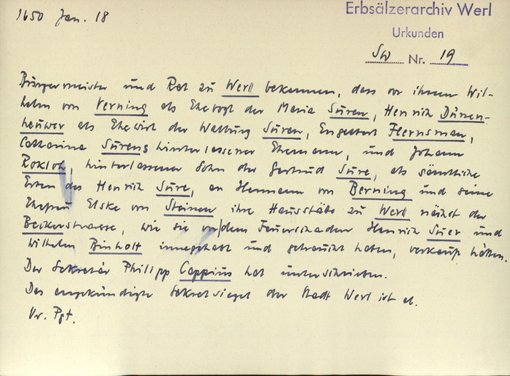 1650 Jan. 18
Erbsälzerarchiv Werl
Urkunden
Sw Nr. 19
Bürgermeister und Rat zu Werl bekennen, dass vor ihnen Wil-
helm von Verning als Ehevogt der Maria Suren, Henrich Düren-
heuwer als Ehewirt der Walburg Suren, Engebert Hernsman,
Catharina Surens hinterlassener Ehemann, und Johann
Rokloh, hinterlassener Sohn der Gertrud Sure, als sämtliche
Erben des Henrich Sure, an Hermann von Berning und seine
Ehefrau Elske von Steinen ihre Hausstätte zu Werl nächst der
Beckerstrasse, wie sie dem Feuerschaden Henrich Suer und
Wilhelm Binholt innegehabt und gebraucht haben, verkauft hätten.
Der Sekretär Philipp Cappius hat unterschrieben.
Das angekündigte Sekretsiegel der Stadt Werl ist ab.
Or. Pgt.